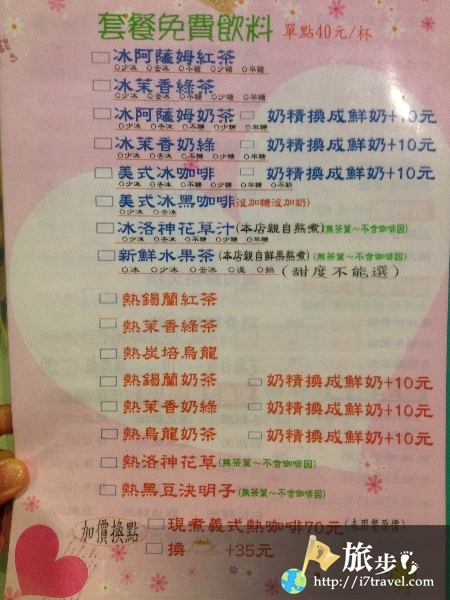 套餐免費飲料 單點40元/杯
冰阿薩姆紅茶
○少冰 ○去冰 ○不糖 ○少糖 ○半糖
冰茉香綠茶
○少冰 ○去冰 ○不糖 ○少糖 ○半糖
冰阿薩姆奶茶 奶精換成鮮奶+10元
○少冰 ○去冰 ○不糖 ○少糖 ○半糖
冰茉香奶綠 奶精換成鮮奶+10元
○少冰 ○去冰 ○不糖 ○少糖 ○半糖
美式冰咖啡 奶精換成鮮奶+10元
○少冰 ○去冰 ○不糖 ○少糖 ○半糖 ○不奶
美式冰黑咖啡 沒加糖沒加奶)
○少冰 ○去冰
冰洛神花草汁(本店親自熬煮)(無茶葉~不含咖啡因)
○少冰 ○去冰 ○不糖 ○少糖 ○半糖
新鮮水果茶(本店親自鮮果熬煮)(無茶葉~不含咖啡因)
○冰 ○少冰 ○去冰 ○溫 ○熱 (甜度不能選)
熱錫蘭紅茶
熱茉香綠茶
熱炭培烏龍
熱錫蘭奶茶 奶精換成鮮奶+10元
熱茉香奶綠 奶精換成鮮奶+10元
熱烏龍奶茶 奶精換成鮮奶+10元
熱洛神花草(無茶葉~不含咖啡因)
熱黑豆決明子(無茶葉~不含咖啡因)
加價換點 現煮義式熱咖啡70元
換 +35元
旅步
http://i7travel.com